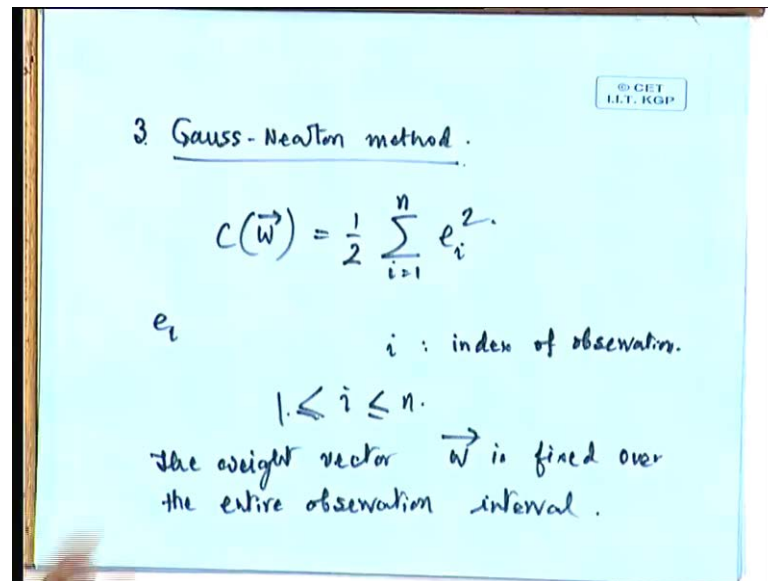 © CET
I.I.T. KGP
3. Gauss-Newton method.
C(w⃗) = 1/2 Σ_{i=1}^{n} e_i^2.
e_i
i : index of observation.
1 ≤ i ≤ n.
The weight vector w⃗ is fixed over
the entire observation interval.